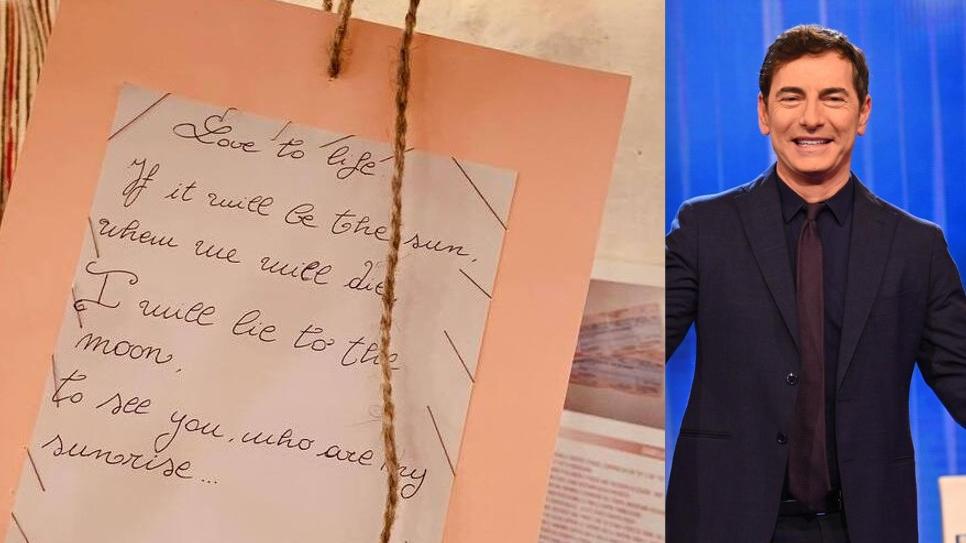 Love to life
If it will be the sun,
when we will die,
I will lie to the
moon,
to see you, who are my
sunrise...